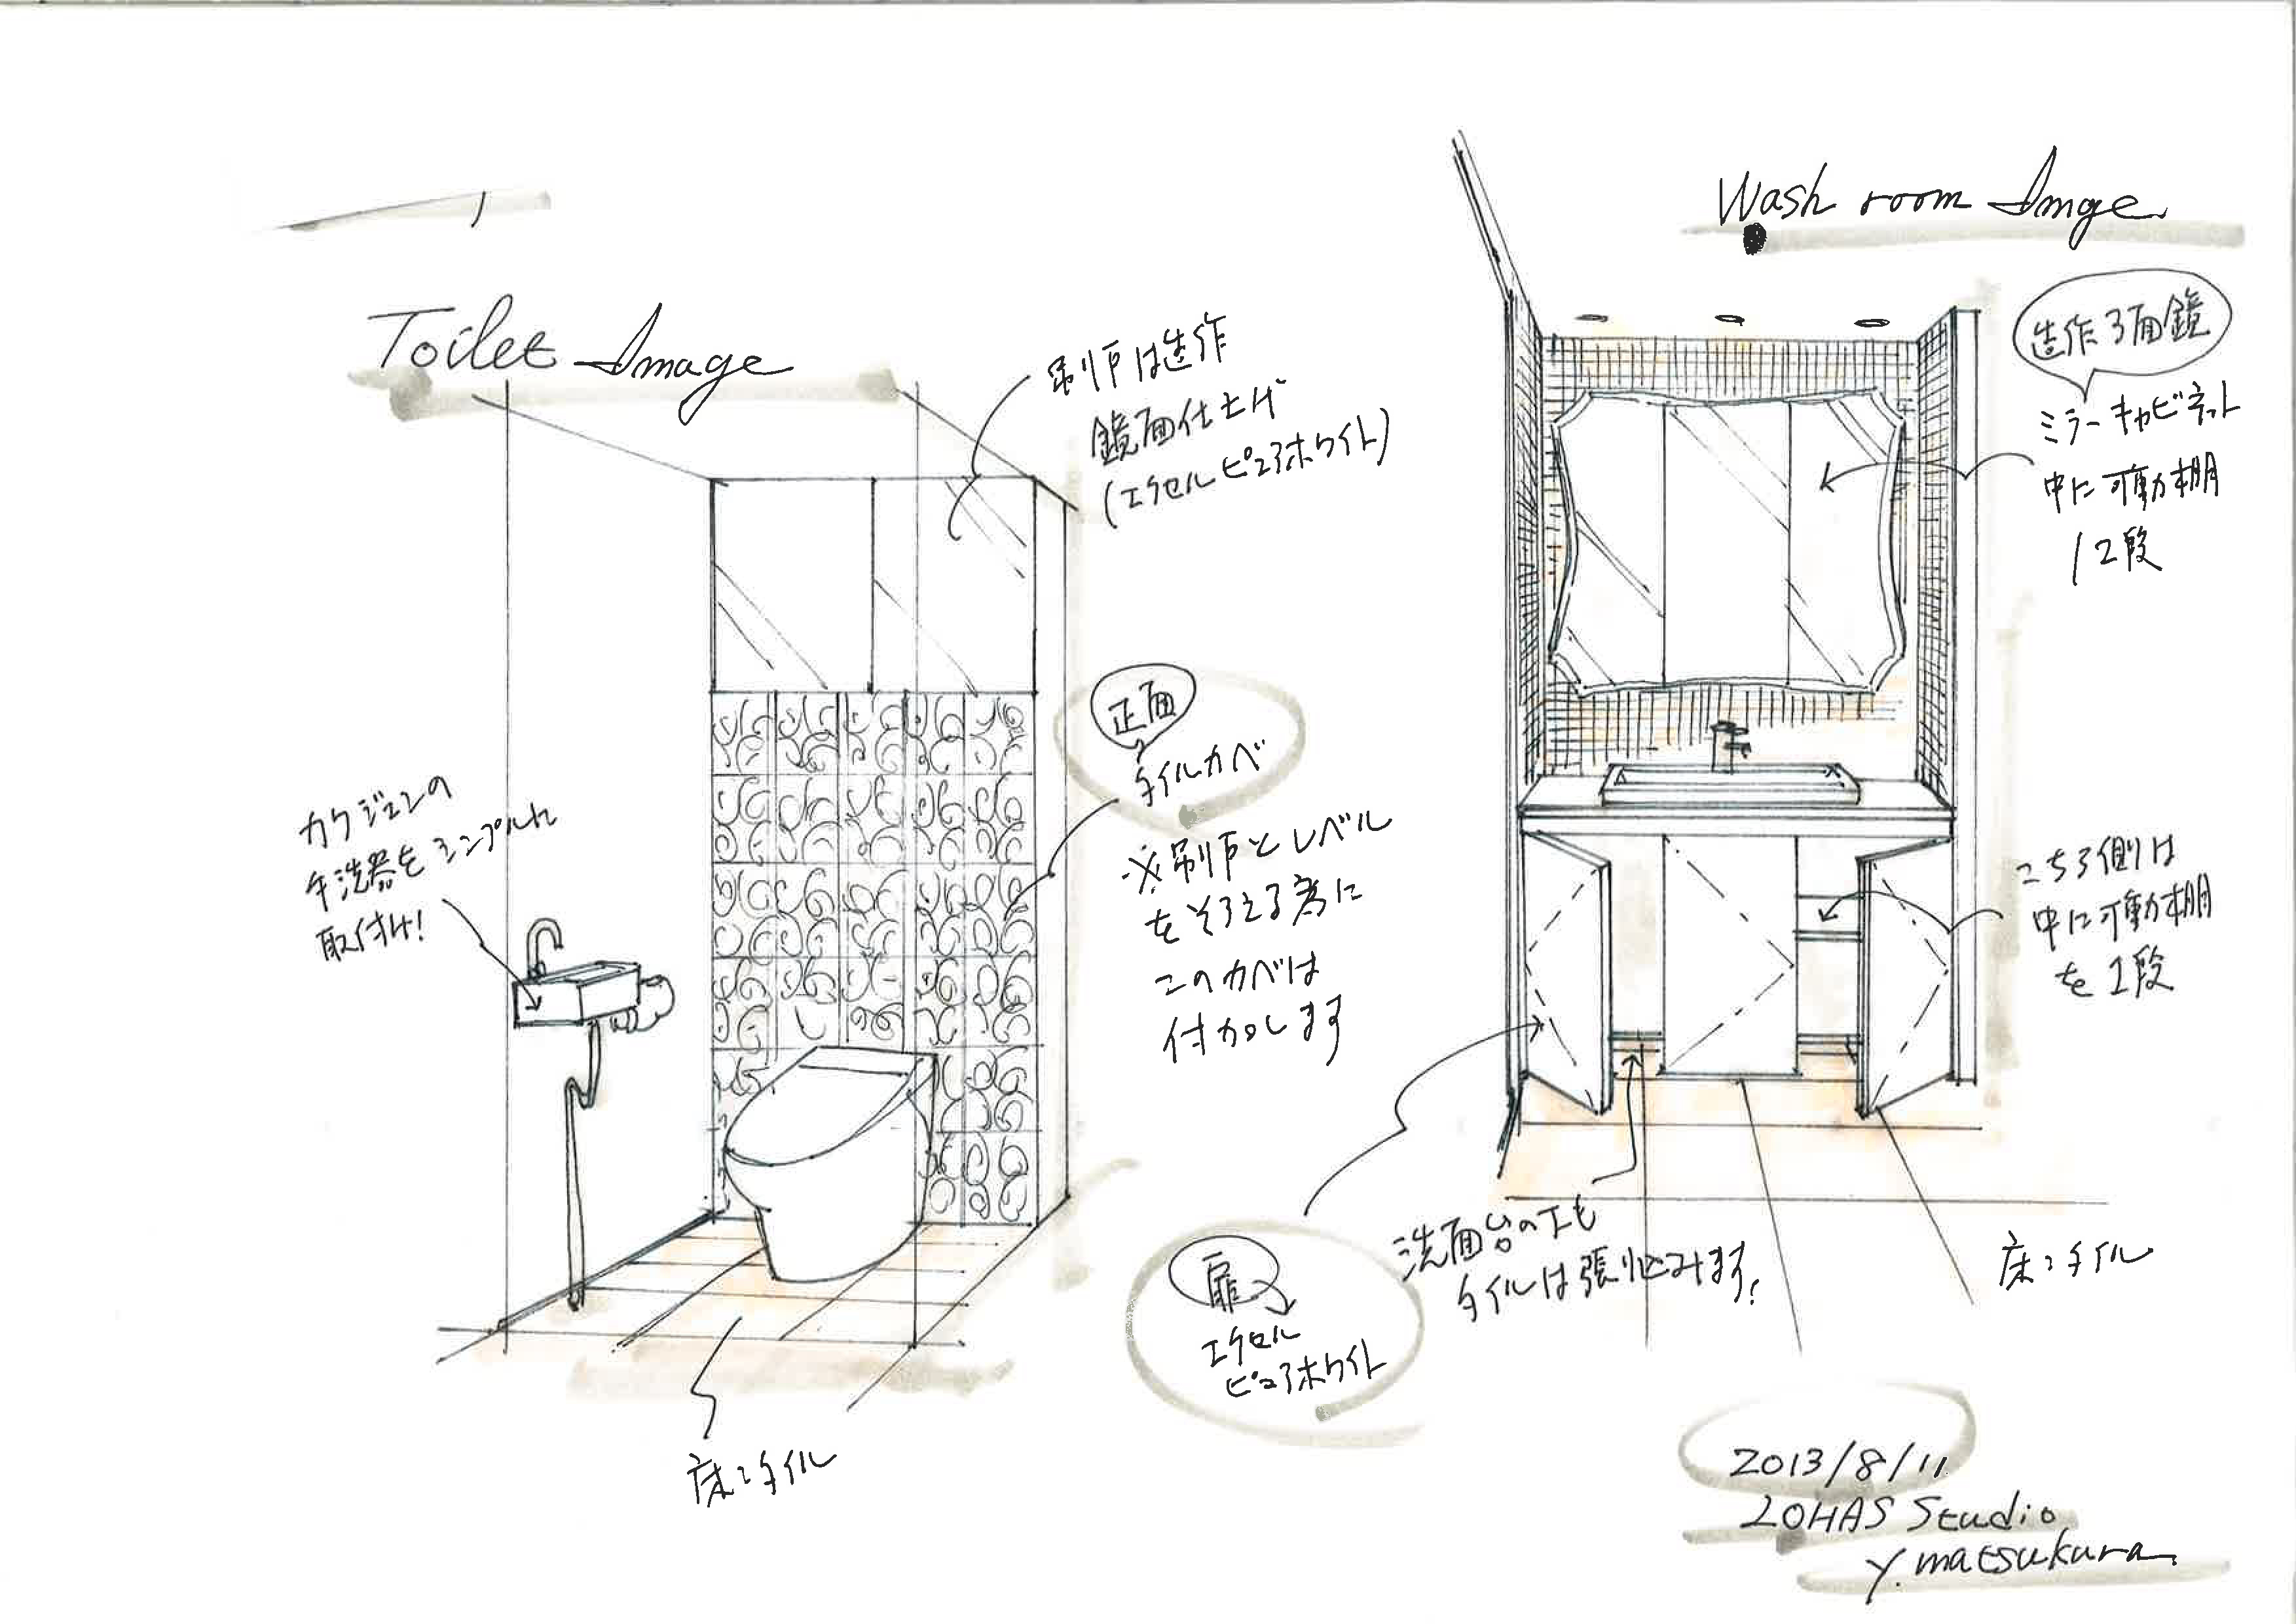 Toilet Image
吊戸は造作
鏡面仕上げ
(エクセルピュアホワイト)
正面
タイルカベ
※吊戸とレベル
をそろえる為に
このカベは
付加します
カクジュンの
手洗器をシンプルに
取付け!
床:タイル
Wash room Imge
造作3面鏡
ミラーキャビネット
中に可動棚
/2段
こちら側は
中に可動棚
を1段
洗面台の下も
タイルは張り込みます!
扉
エクセル
ピュアホワイト
床:タイル
2013/8/11
LOHAS Studio
Y.matsukura